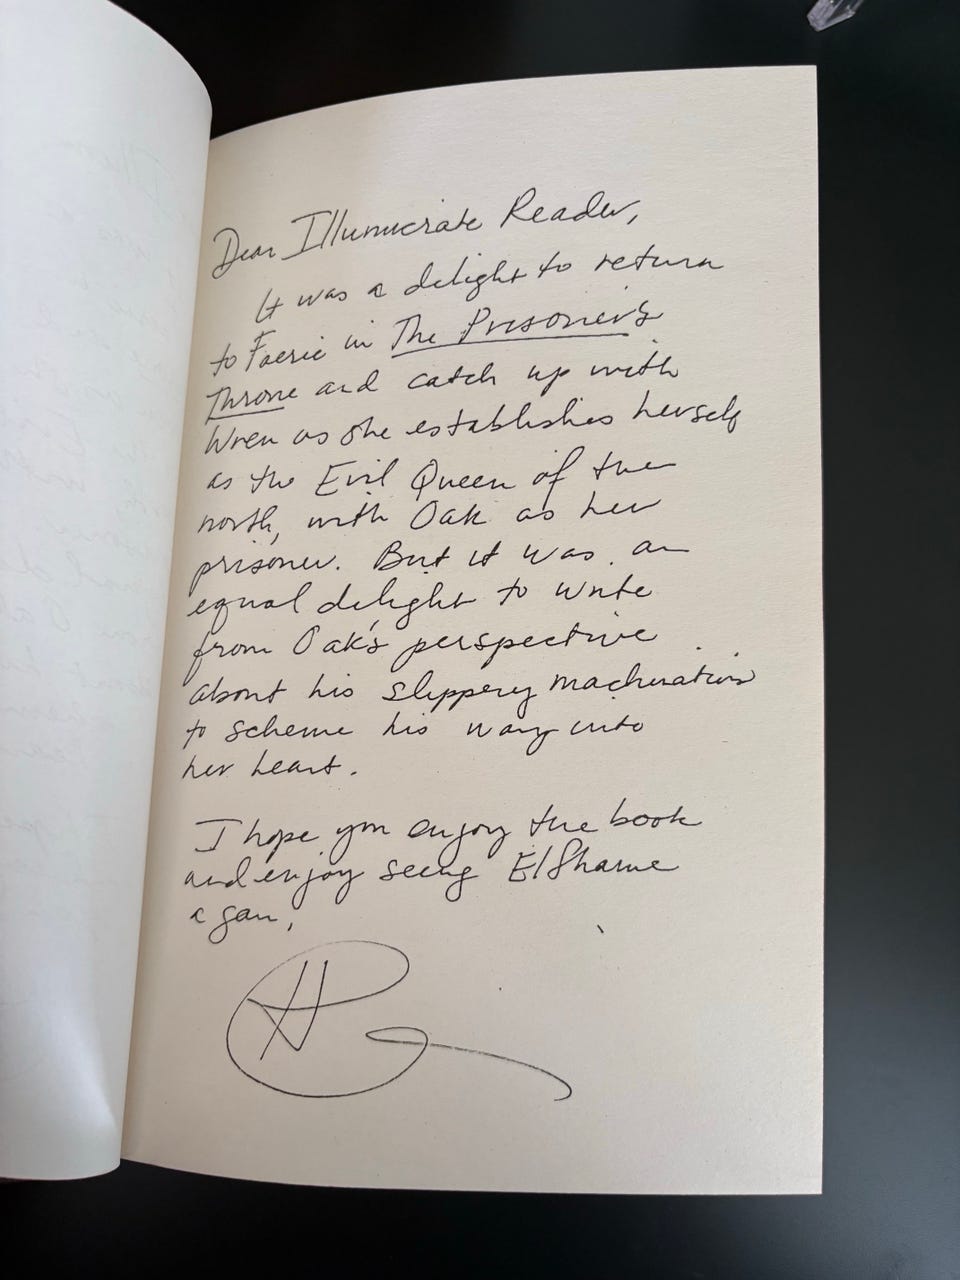 Dear Illumicrate Reader,
It was a delight to return
to Faerie in The Prisoner's
Throne and catch up with
Wren as she establishes herself
as the Evil Queen of the
north, with Oak as her
prisoner. But it was an
equal delight to write
from Oak's perspective
about his slippery machinations
to scheme his way into
her heart.
I hope you enjoy the book
and enjoy seeing Elfhame
again,
H